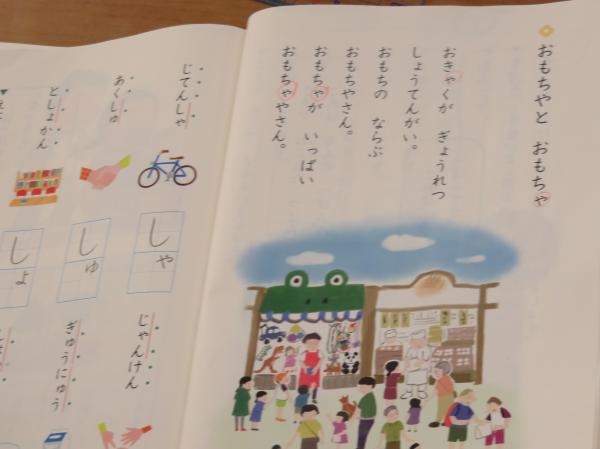 おもちやと おもちゃ
おきゃくが ぎょうれつ
しょうてんがい。
おもちの ならぶ
おもちやさん。
おもちゃが いっぱい
おもちゃやさん。
じてんしゃ
あくしゅ
としょかん
しゃ
しゅ
しょ
じゃんけん
ぎゅうにゅう